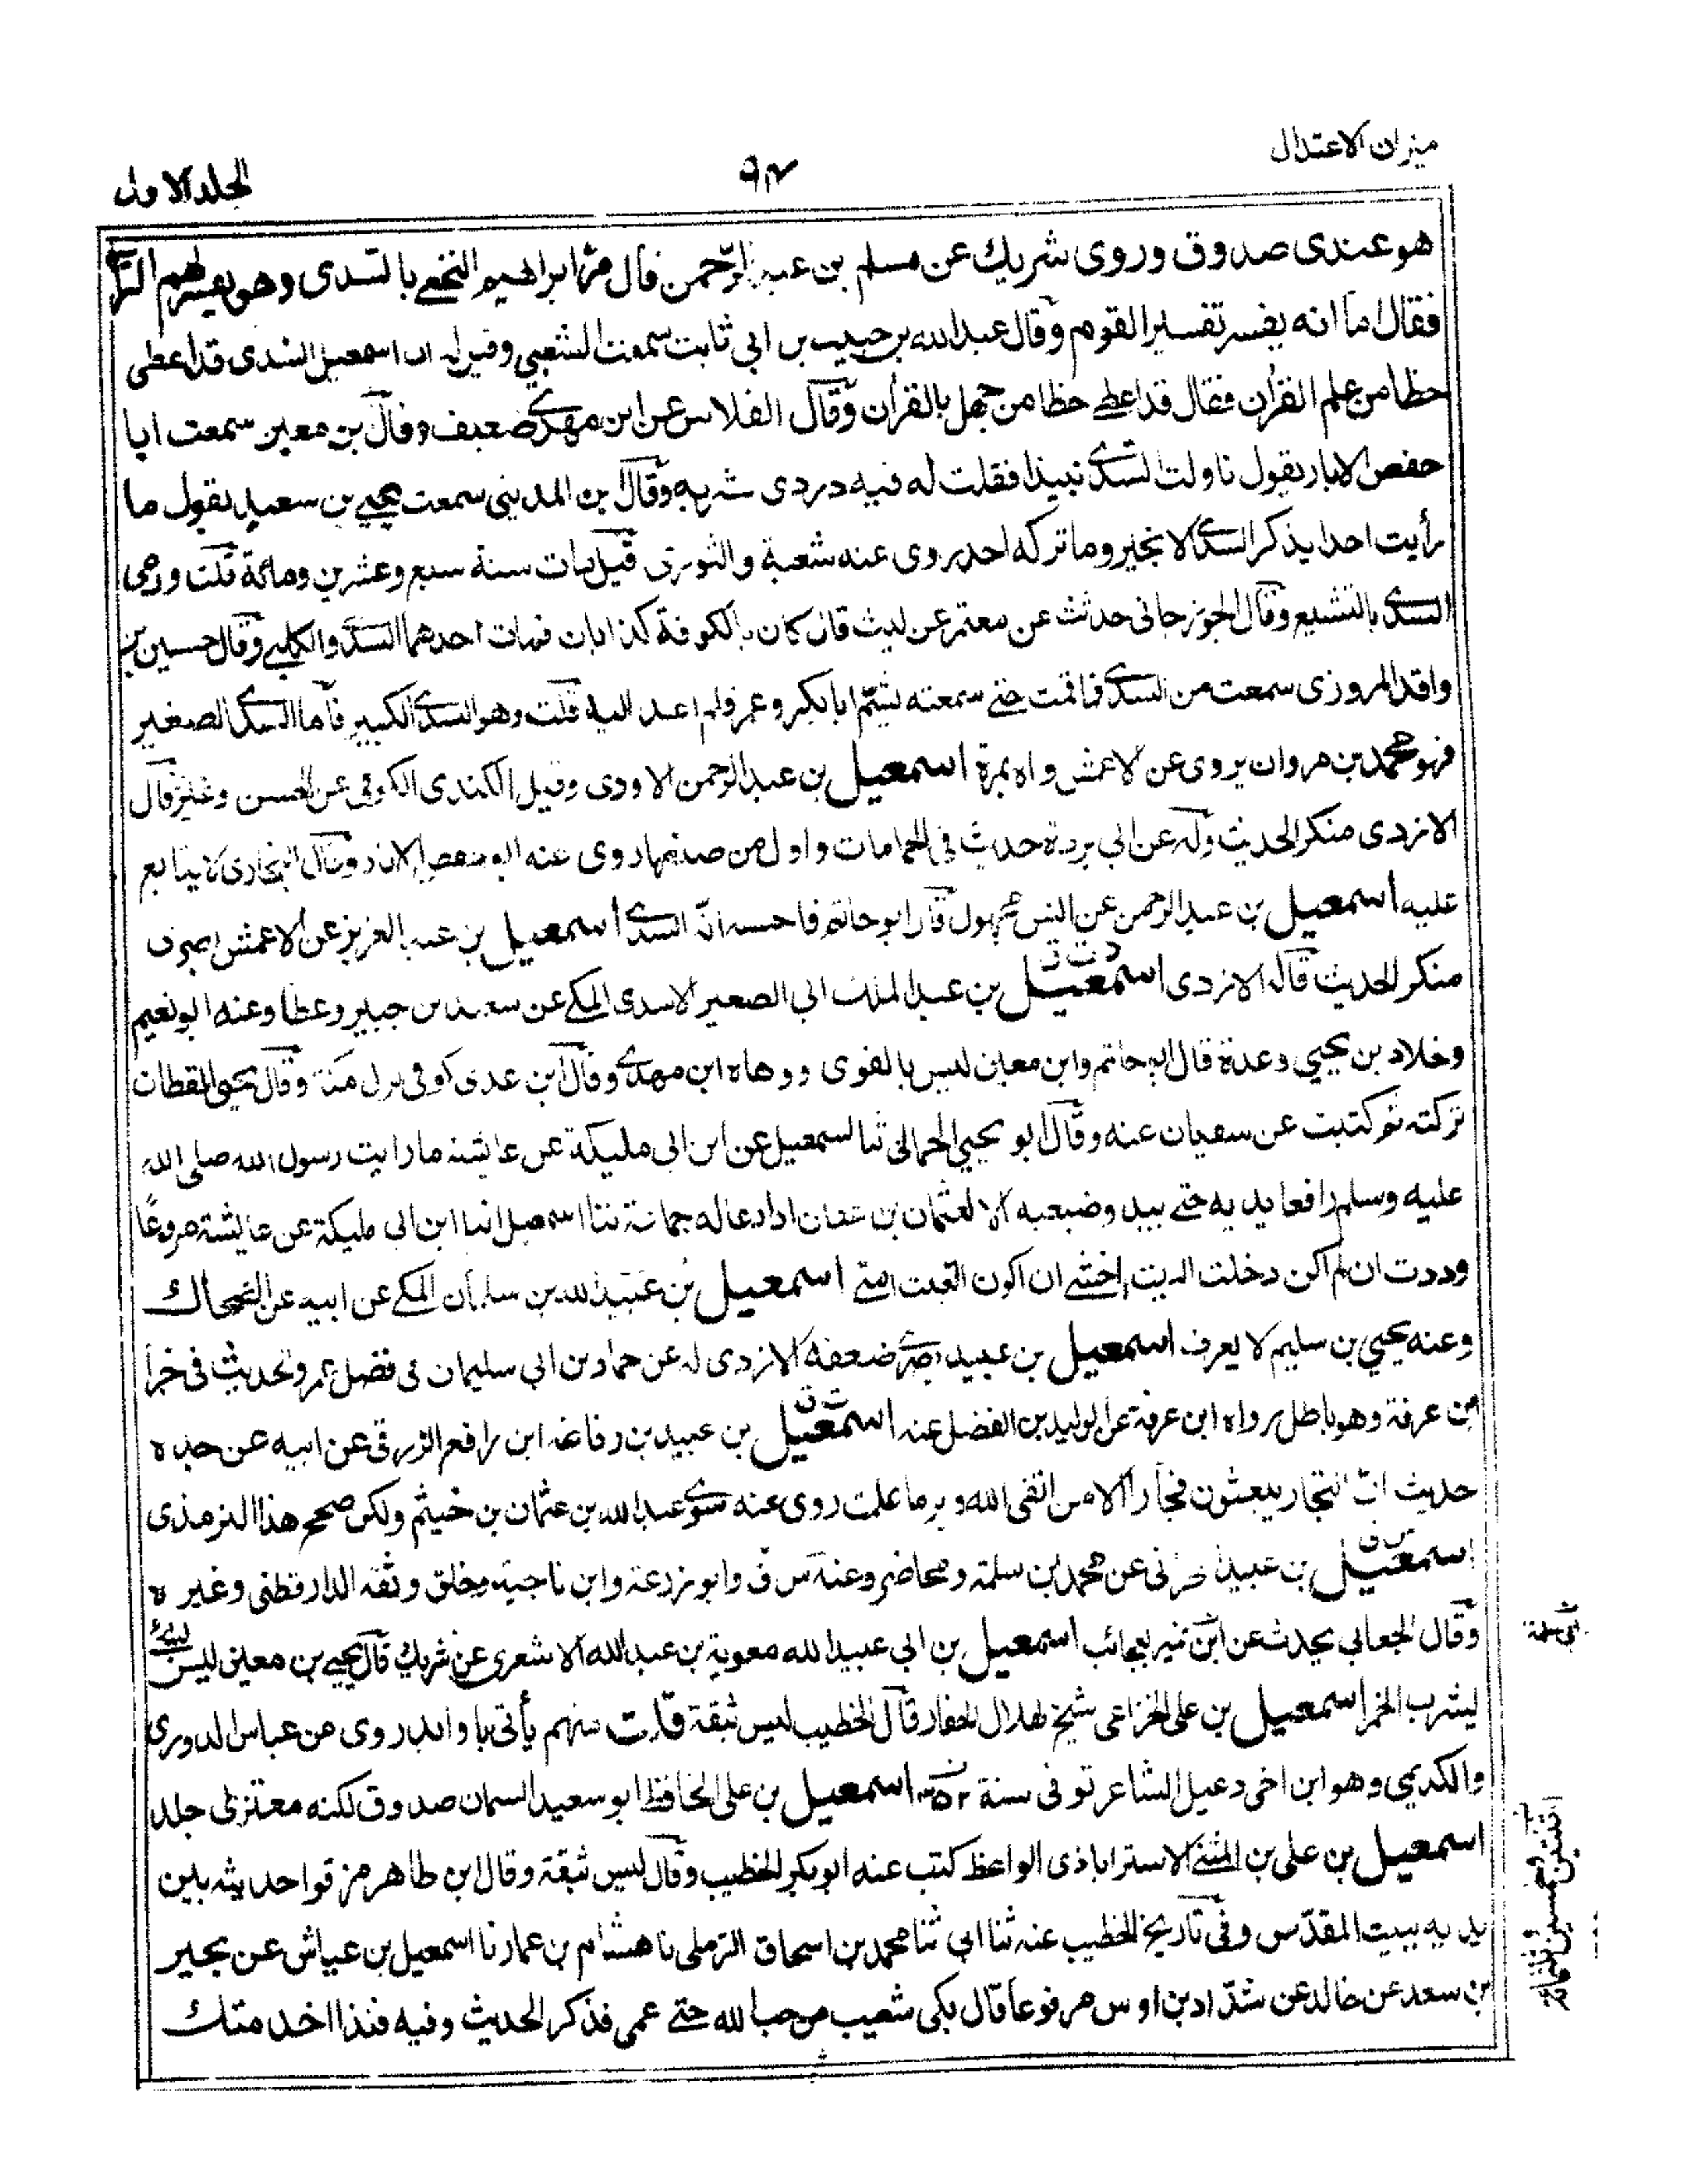 ميزان الاعتدال
٩٤
الجلد الاول
هو عندى صدوق وروى شريك عن مسلم بن عبد الرحمن قال مر ابراهيم النخعي بالسدى وهو يفسر لهم القرآن
فقال اما انه يفسر تفسير القوم وقال عبد الله بن حبيب بن ابي ثابت سمعت الشعبي وقيل له ان اسمعيل السدى قد اعطى
حظا من علم القرأن فقال قد اعطے حظا من جهل بالقرأن وقال الفلاس عن ابن مهدي ضعيف وقال بن معين سمعت ابا
حفص الابار يقول ناولت السدي نبيذا فقلت له فيه دردى شربه وقال بن المديني سمعت يحيے بن سعيد يقول ما
رأيت احدا يذكر السدي الا بخير وما تركه احد روى عنه شعبة والثورى قيل مات سنة سبع وعشرين ومائة قلت ورمى
السدي بالتشيع وقال الجوزجانى حدثت عن معتمر عن ليث قال كان بالكوفة كذابان فمات احدهما السدي والكلبے وقال حسين بن
واقد المروزى سمعت من السدي فما قمت حتے سمعته يشتم ابا بكر وعمر ولم اعد اليه قلت وهو السدي الكبير فاما السدي الصغير
فهو محمد بن مروان يروى عن الاعمش واه بمرة اسمعيل بن عبد الرحمن الاودى وقيل الكندى الكوفى عن الحسن وغيره قال
الازدى منكر الحديث وله عن ابي بردة حديث فى الحمامات واول من صنعها روى عنه ابو حفص الابار وقال البخارى لا يتابع
عليه اسمعيل بن عبد الرحمن عن انس مجهول قال ابو حاتم فاحسبه انه السدي اسمعيل بن عبد العزيز عن الاعمش
منكر الحديث قاله الازدى اسمعيل د ت ق بن عبد الملك ابي الصعير الاسدى المكے عن سعيد بن جبير وعطا وعنه ابو نعيم
وخلاد بن يحيي وعدة قال ابو حاتم وابن معين ليس بالقوى ووهاه ابن مهدي وقال ابن عدى كوفى نزل مكة وقال يحيى القطان
تركته ثم كتبت عن سفيان عنه وقال ابو يحيي الحمانى ثنا اسمعيل عن ابن ابي مليكة عن عائشة ما رايت رسول الله صلى الله
عليه وسلم رافعا يديه حتے يبدو ضبعيه الا لعثمان بن عفان اذا دعا له جمانة ثنا اسمعيل انبا ابن ابي مليكة عن عايشة مرفوعًا
وددت ان لم اكن دخلت البيت اخشے ان اكون اتعبت امتے اسمعيل بن عبيد الله بن سلمان المكے عن ابيه عن الضحاك
وعنه يحيي بن سليم لا يعرف اسمعيل بن عبيد بصري ضعفه الازدى له عن حماد بن ابي سليمان فى فضل عمر وتحديث فى خبرا
بن عرفة وهو باطل رواه ابن عرفة عن الوليد بن الفضل عنه اسمعيل ت ق بن عبيد بن رفاعة ابن رافع الزرقى عن ابيه عن جده
حديث ان التجار يبعثون فجارا الا من اتقى الله وبر ما علمت روى عنه سوي عبد الله بن عثمان بن خيثم ولكن صحح هذا الترمذى
اسمعيل س ق بن عبيد الحرانى عن محمد بن سلمة ومحاضر وعنه س ق وابو زرعة وابن ناجية وخلق وثقه الدارقطنى وغيره
وقال الجعابي يحدث عن ابن نمير بعجائب اسمعيل بن ابي عبيد الله معوية بن عبد الله الاشعرى عن شريك قال يحيے بن معين ليس بشئ
يشرب الخمر اسمعيل بن على الخزاعى شيخ لهلال الحفار قال الخطيب ليس بثقة قلت متهم يأتى باوابد روى عن عباس الدورى
والكديمي وهو ابن اخى دعبل الشاعر توفى سنة ٣٥٢ اسمعيل بن على الحافظ ابو سعيد السمان صدوق لكنه معتزلى جلد
اسمعيل بن على بن المثنے الاستراباذى الواعظ كتب عنه ابو بكر الخطيب وقال ليس بثقة وقال ابن طاهر مزقوا حديثه بين
يديه ببيت المقدس وفى تاريخ الخطيب عنه ثنا ابي ثنا محمد بن اسحاق الرملى نا هشام بن عمار نا اسمعيل بن عياش عن بحير
بن سعد عن خالد عن شداد بن اوس مرفوعا قال بكى شعيب من حب الله حتے عمى فذكر الحديث وفيه فلذا اخدمتك